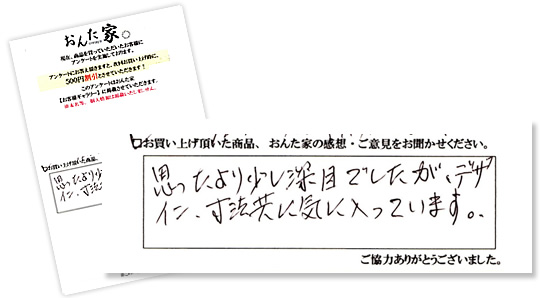 おんた家
現在、商品を買っていただいたお客様に
アンケートを実施しております。
アンケートにお答え頂きますと、次回お買い上げ時に、
500円割引とさせていただきます!
このアンケートはおんた家
【お客様ギャラリー】に掲載させていただきます。
□お買い上げ頂いた商品、
思ったより少し深目
イン、寸法共に気に
□お買い上げ頂いた商品、おんた家の感想・ご意見をお聞かせください。
思ったより少し深目でしたが、デザ
イン、寸法共に気に入っています。
ご協力ありがとうございました。